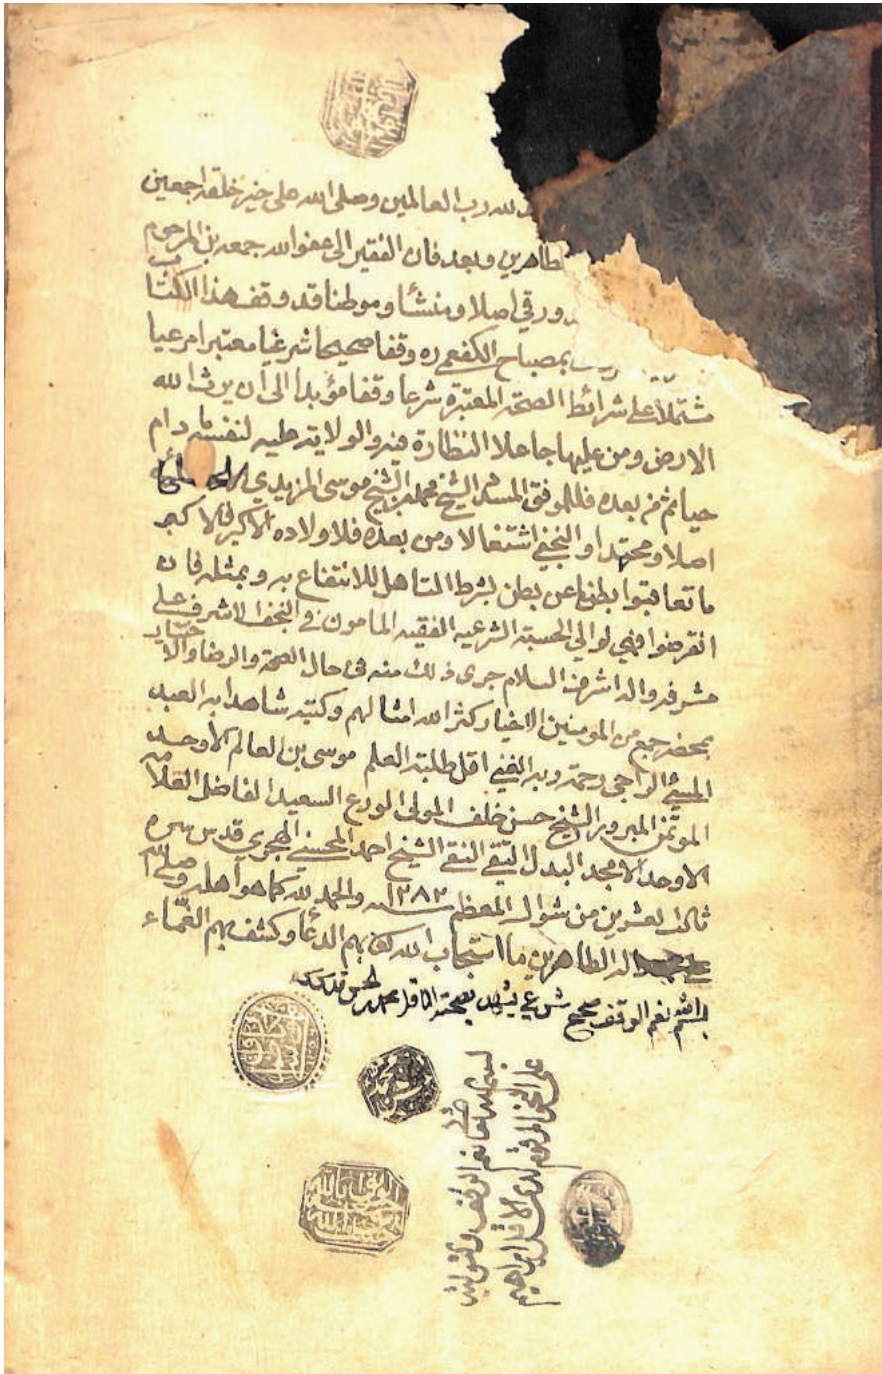 لله رب العالمين وصلى الله على خير خلقه اجمعين
الطاهرين وبعد فان الفقير الى عفو الله جمعه بن المرحوم
دورقي اصلا ومنشأ وموطنا قد وقف هذا الكتاب
بمصباح الكفعمي ره وقفا صحيحا شرعيا معتبرا مرعيا
مشتملا على شرائط الصحة المعتبرة شرعا وقفا مؤبدا الى ان يرث الله
الارض ومن عليها جاعلا النظارة فيه والولاية عليه لنفسه ما دام
حيا ثم من بعده فللموفق المسدد الشيخ محمد بن الشيخ موسى المزيدي
اصلا ومحتدا والنجفي اشتغالا ومن بعده فلاولاده الاكبر فالاكبر
ما تعاقبوا بطنا عن بطن بشرط المتاهل للانتفاع به وبمثله فان
انقرضوا فهي لوالي الحسبة الشرعيه الفقيه المامون في النجف الاشرف على
مشرفه واله اشرف السلام جرى ذلك منه في حال الصحة والرضا والاختيار
بمحضر جمع من المومنين الاخيار كثر الله امثالهم وكتبه شاهدا به العبد
المسيئ الراجي رحمة ربه الغني اقل طلبة العلم موسى بن العالم الاوحد
المؤتمن المبرور الشيخ حسن خلف المولى الورع السعيد الفاضل العلامه
الاوحد الامجد البدل التقي النقي الشيخ احمد المحسني الهجري قدس سره
ثالث العشرين من شوال المعظم سنه ١٢٨٢ والحمد لله كما هو اهله وصلى الله
على اله الطاهرين ما استجاب الله بهم الدعا وكشف بهم الغماء
بسم الله نعم الوقف صحيح شرعي يشهد بصحته الاقل محمد
بسم الله نعم الوقف
على النحو المرقوم لدى الاقل ابراهيم